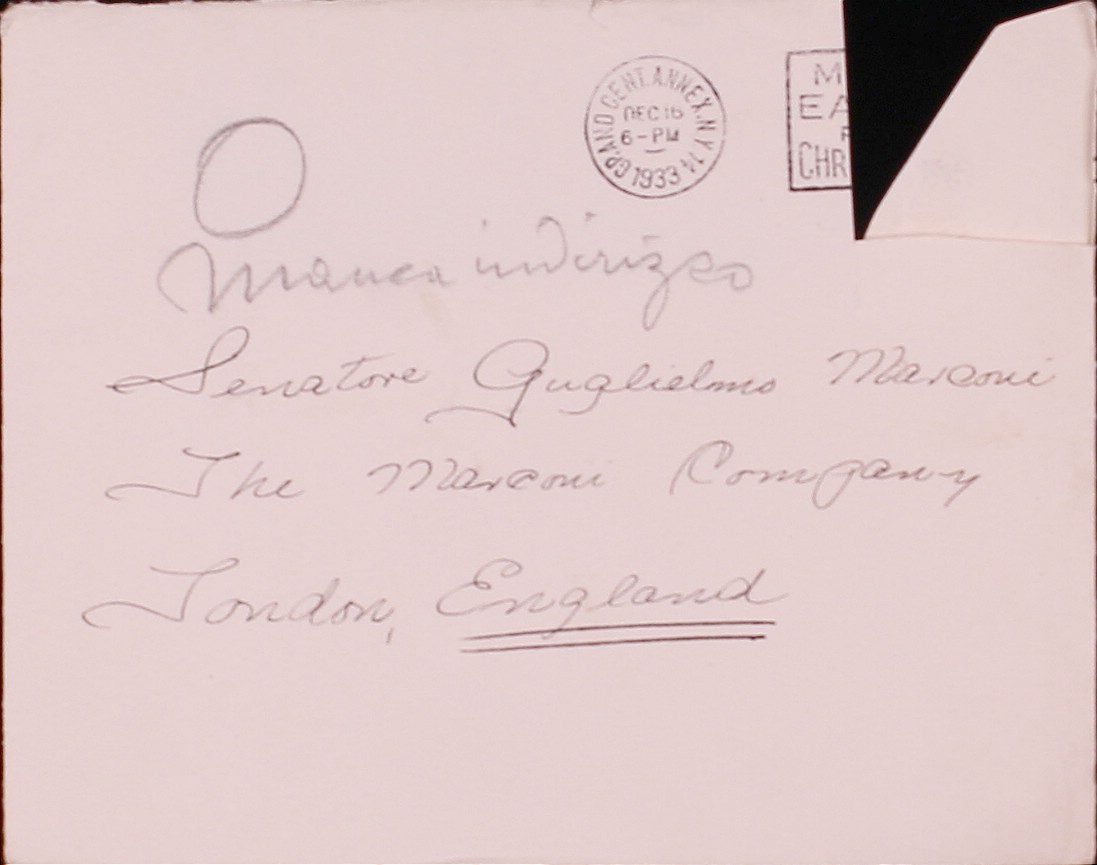 GRAND CENT. ANNEX. N.Y. 14
DEC 16
6-PM
1933
M
EA
CHR
O
Manca indirizzo
Senatore Guglielmo Marconi
The Marconi Company
London, England